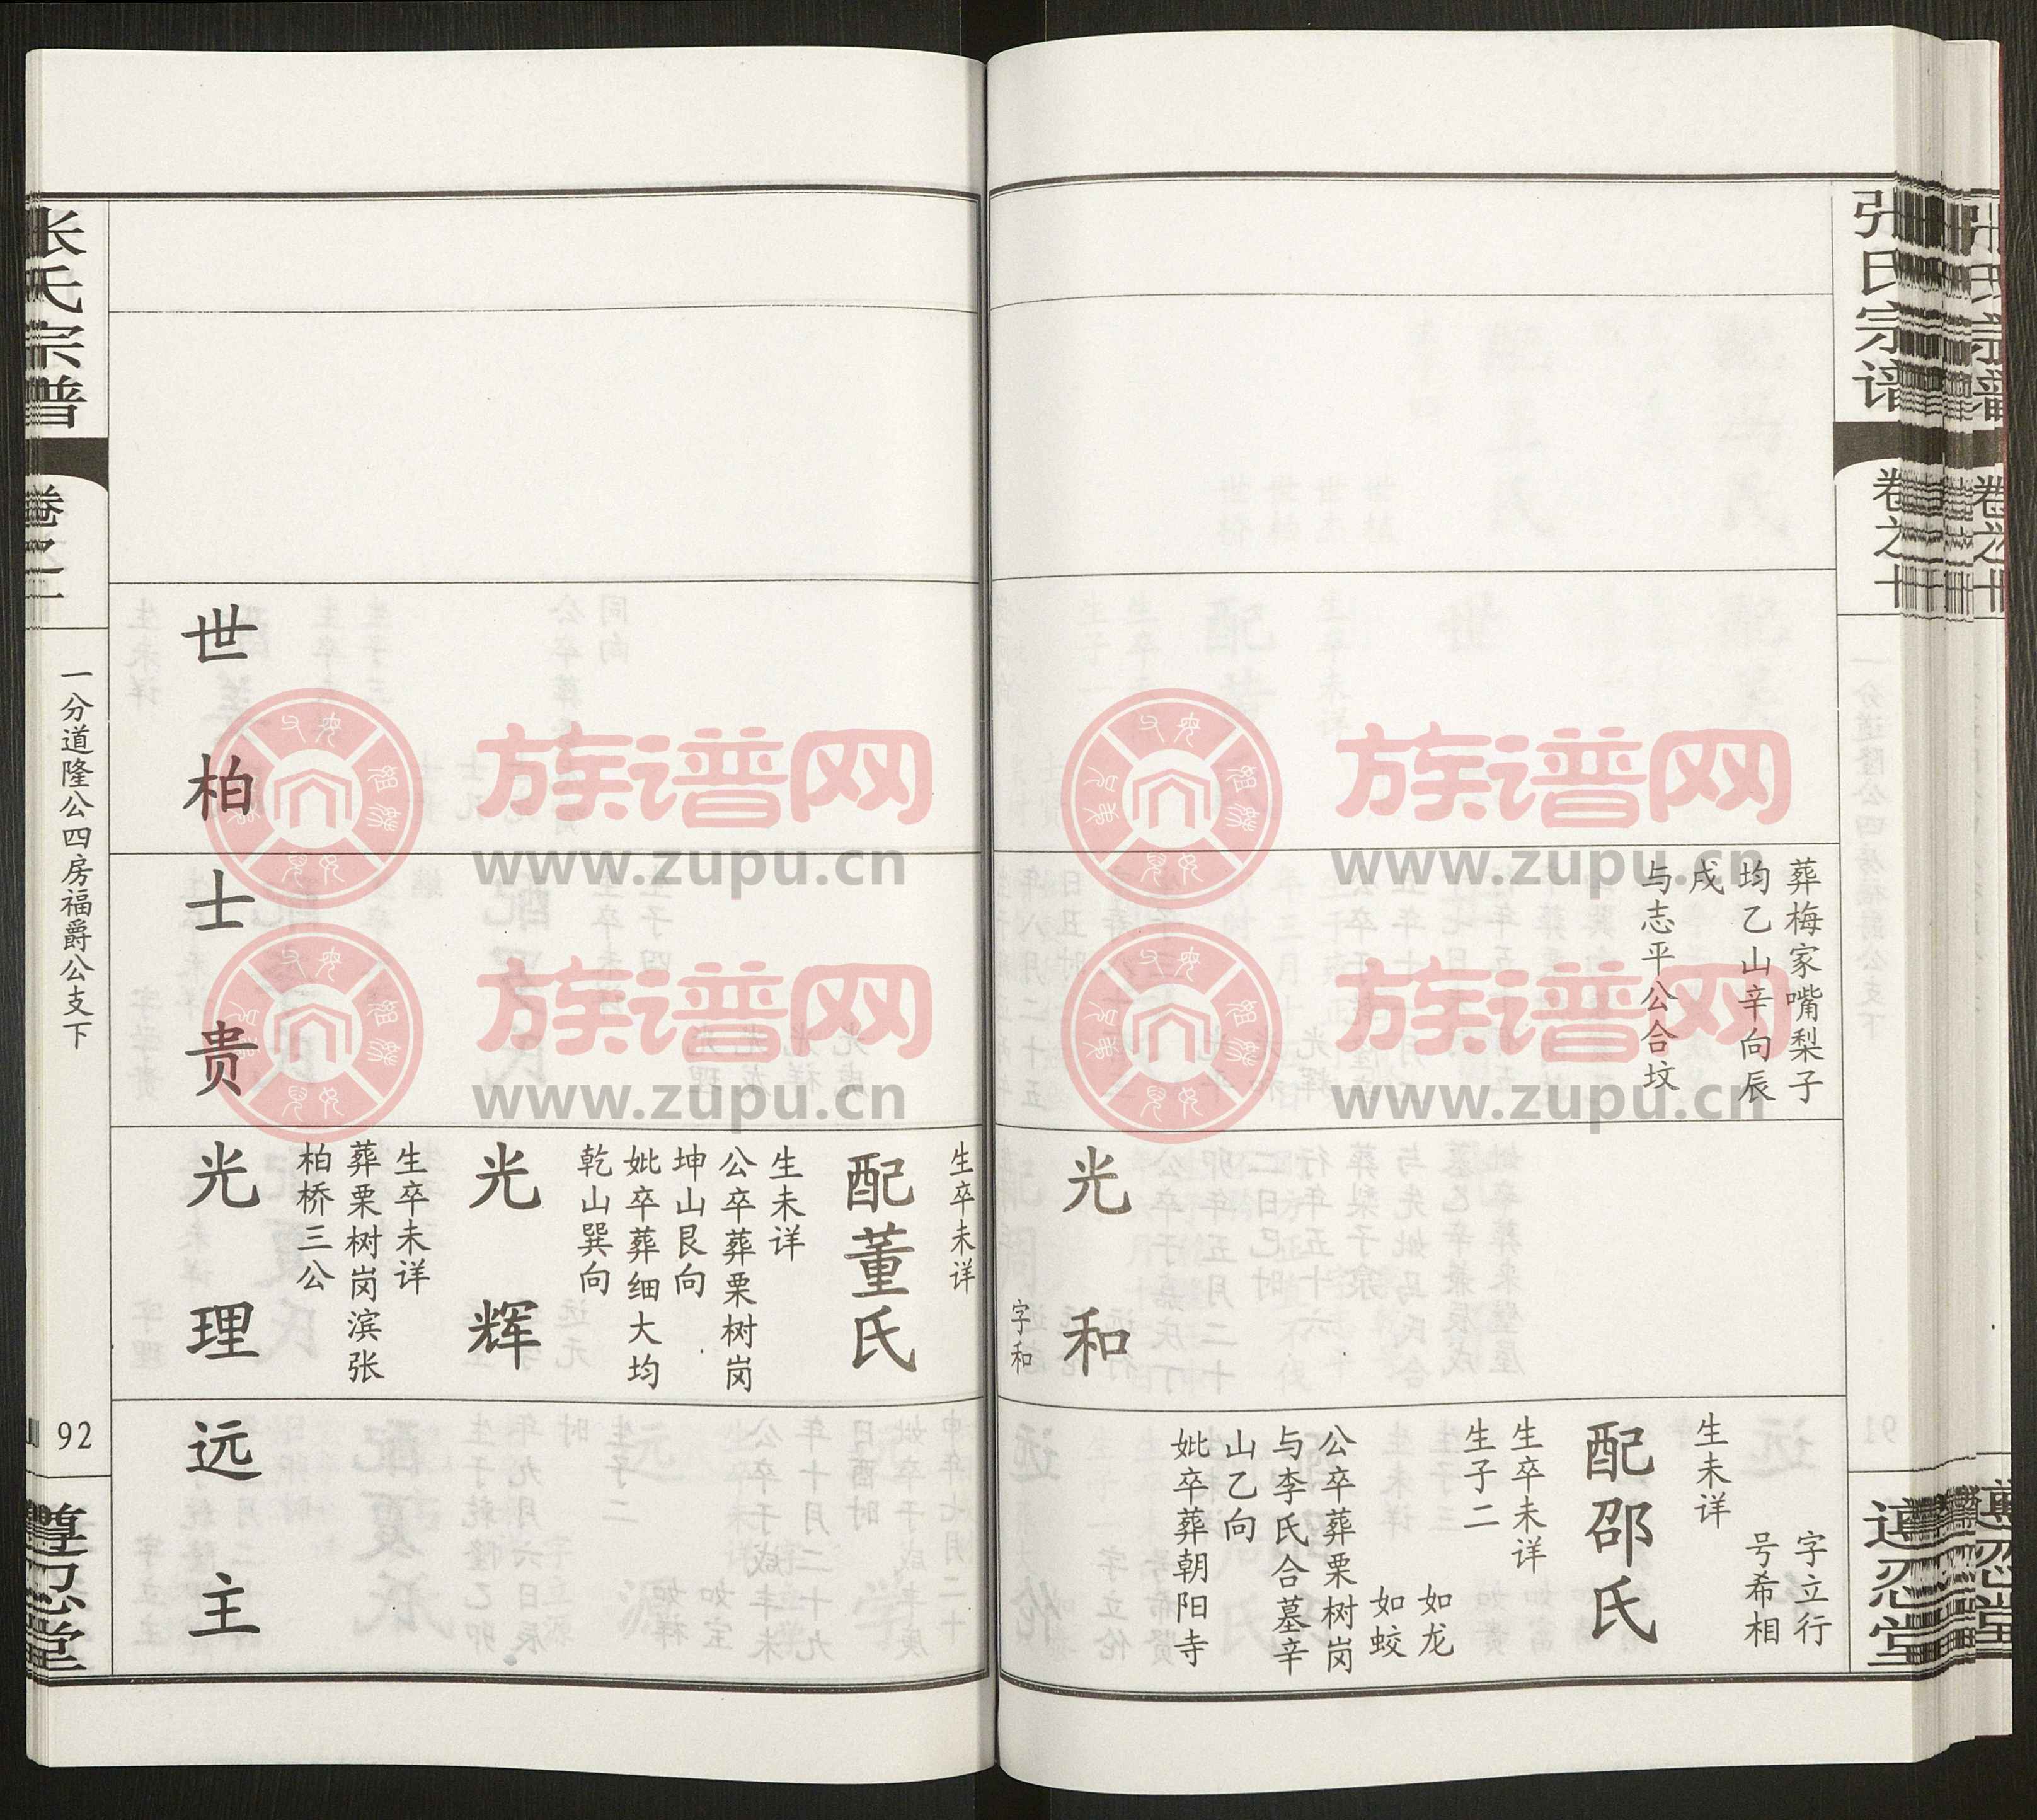 张氏宗谱
卷之十
葬梅家嘴梨子
均乙山辛向辰
戌
与志平公合坟
光和
字和
字立行
号希相
生未详
配邵氏
生卒未详
生子二
如龙
如蛟
公卒葬栗树岗
与李氏合墓辛
山乙向
妣卒葬朝阳寺
世柏
士贵
生卒未详
配董氏
生未详
公卒葬栗树岗
坤山艮向
妣卒葬细大均
乾山巽向
光辉
生卒未详
葬栗树岗滨张
柏桥三公
光理
远主
张氏宗谱
卷之
一分道隆公四房福爵公支下
92
忍堂
族谱网
www.zupu.cn
族谱网
www.zupu.cn
族谱网
www.zupu.cn
族谱网
www.zupu.cn